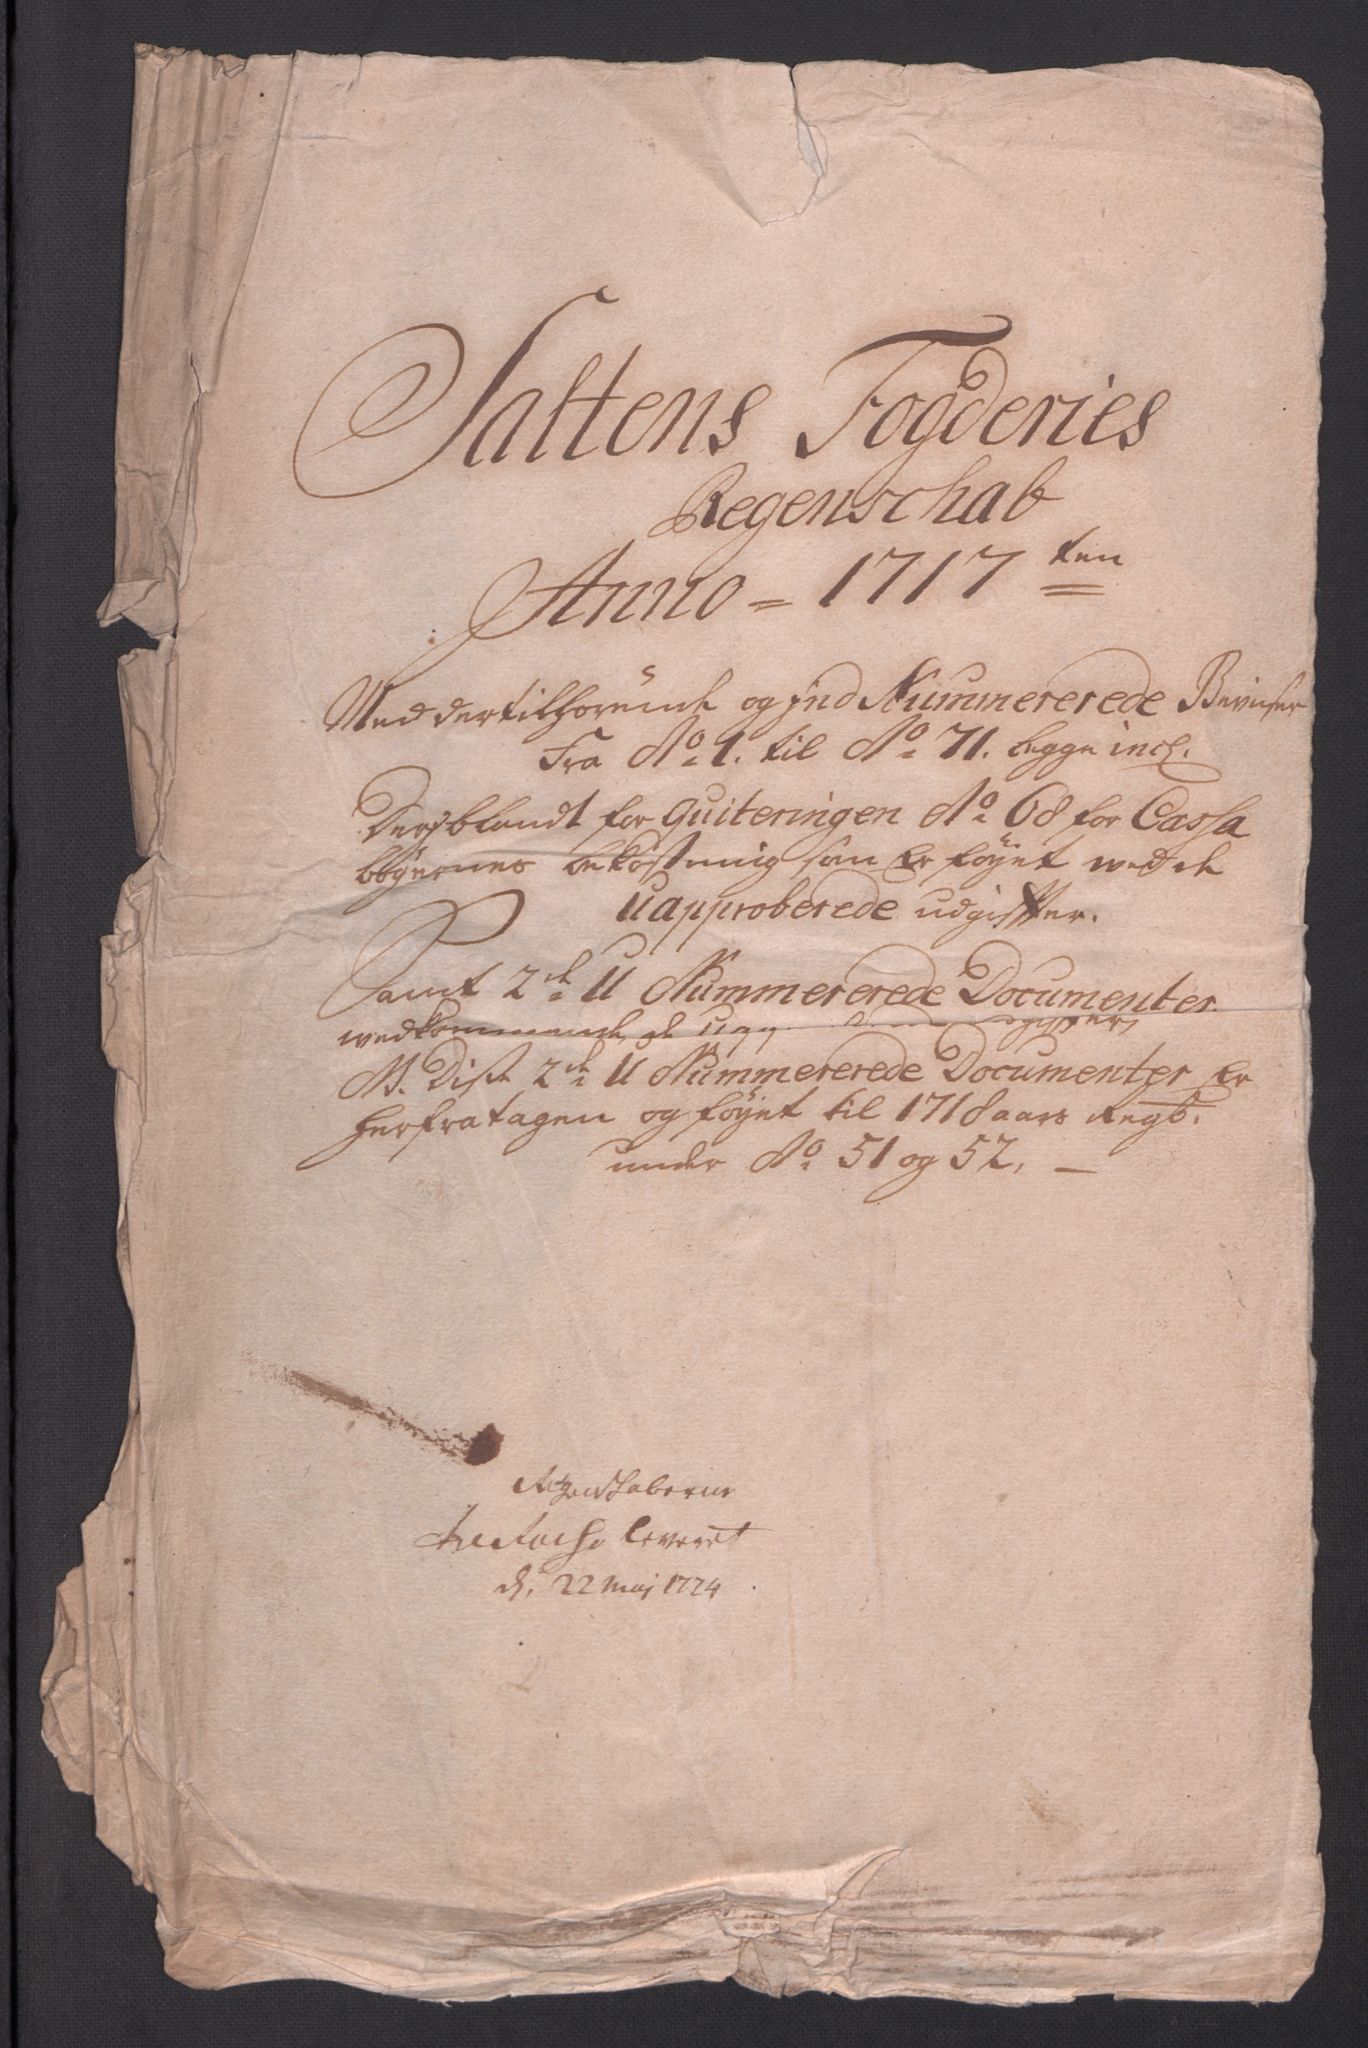 Saltens Fogderies
Regenschab
Anno = 1717 ten
Med dertilhörende og ind Nummererede Beviiser
Fra No 1. til No 71. begge incl.
Deriblandt for Quiteringen No 68 for Cassa
bögernes bekostning som er föyet wed de
Uapproberede udgiffter.
Samt 2de U Nummererede Documenter
wedkommende de
NB. Disse 2de U Nummererede Documenter er
herfratagen og föyet til 1718 aars Regb.
under No 51 og 52.
Regenskaberne
leveret
d. 22 Maj 1724